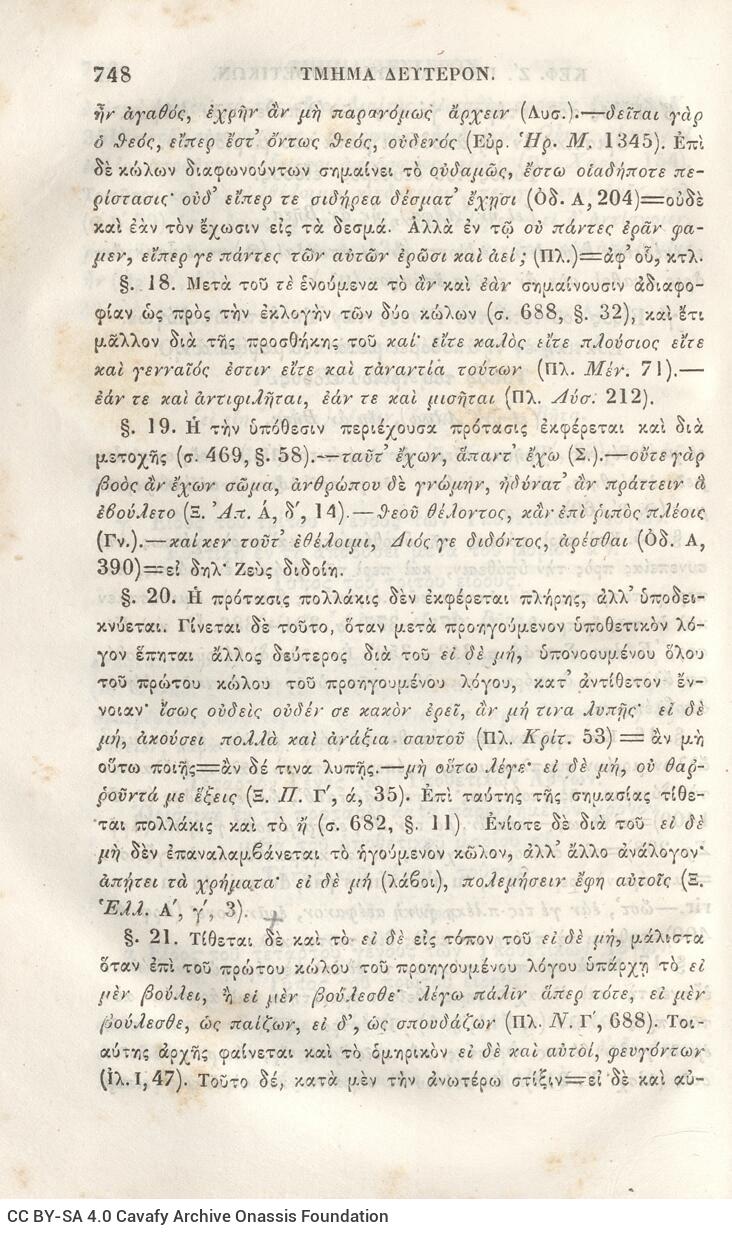 748 ΤΜΗΜΑ ΔΕΥΤΕΡΟΝ.
ἦν ἀγαθός, ἐχρῆν ἂν μὴ παρανόμως ἄρχειν (Λυσ.).—δεῖται γὰρ
ὁ θεός, εἴπερ ἔστ᾽ ὄντως θεός, οὐδενός (Εὐρ. Ἡρ. Μ. 1345). Ἐπὶ
δὲ κώλων διαφωνούντων σημαίνει τὸ οὐδαμῶς, ἔστω οἱαδήποτε πε-
ρίστασις· οὐδ᾽ εἴπερ τε σιδήρεα δέσματ᾽ ἔχῃσι (Ὀδ. Α, 204)=οὐδὲ
καὶ ἐὰν τὸν ἔχωσιν εἰς τὰ δεσμά. Ἀλλὰ ἐν τῷ οὐ πάντες ἐρᾶν φα-
μεν, εἴπερ γε πάντες τῶν αὐτῶν ἐρῶσι καὶ ἀεί; (Πλ.)=ἀφ᾽ οὗ, κτλ.
§. 18. Μετὰ τοῦ τὲ ἑνούμενα τὸ ἂν καὶ ἐὰν σημαίνουσιν ἀδιαφο-
ρίαν ὡς πρὸς τὴν ἐκλογὴν τῶν δύο κώλων (σ. 688, §. 32), καὶ ἔτι
μᾶλλον διὰ τῆς προσθήκης τοῦ καί· εἴτε καλὸς εἴτε πλούσιος εἴτε
καὶ γενναῖός ἐστιν εἴτε καὶ τἀναντία τούτων (Πλ. Μέν. 71).—
ἐάν τε καὶ ἀντιφιλῆται, ἐάν τε καὶ μισῆται (Πλ. Λύσ. 212).
§. 19. Ἡ τὴν ὑπόθεσιν περιέχουσα πρότασις ἐκφέρεται καὶ διὰ
μετοχῆς (σ. 469, §. 58).—ταῦτ᾽ ἔχων, ἅπαντ᾽ ἔχω (Σ.).—οὔτε γὰρ
βοὸς ἂν ἔχων σῶμα, ἀνθρώπου δὲ γνώμην, ἠδύνατ᾽ ἂν πράττειν ἃ
ἐβούλετο (Ξ. Ἀπ. Ά, δ΄, 14).—θεοῦ θέλοντος, κἂν ἐπὶ ῥιπὸς πλέοις
(Γν.).—καί κεν τοῦτ᾽ ἐθέλοιμι, Διός γε διδόντος, ἀρέσθαι (Ὀδ. Α,
390)=εἰ δηλ· Ζεὺς διδοίη.
§. 20. Ἡ πρότασις πολλάκις δὲν ἐκφέρεται πλήρης, ἀλλ᾽ ὑποδει-
κνύεται. Γίνεται δὲ τοῦτο, ὅταν μετὰ προηγούμενον ὑποθετικὸν λό-
γον ἕπηται ἄλλος δεύτερος διὰ τοῦ εἰ δὲ μή, ὑπονοουμένου ὅλου
τοῦ πρώτου κώλου τοῦ προηγουμένου λόγου, κατ᾽ ἀντίθετον ἔν-
νοιαν· ἴσως οὐδεὶς οὐδέν σε κακὸν ἐρεῖ, ἂν μή τινα λυπῇς· εἰ δὲ
μή, ἀκούσει πολλὰ καὶ ἀνάξια σαυτοῦ (Πλ. Κρίτ. 53) = ἂν μὴ
οὕτω ποιῇς=ἂν δέ τινα λυπῇς.—μὴ οὕτω λέγε· εἰ δὲ μή, οὐ θαρ-
ροῦντά με ἕξεις (Ξ. Π. Γ΄, ά, 35). Ἐπὶ ταύτης τῆς σημασίας τίθε-
ται πολλάκις καὶ τὸ ἤ (σ. 682, §. 11). Ἐνίοτε δὲ διὰ τοῦ εἰ δὲ
μὴ δὲν ἐπαναλαμβάνεται τὸ ἡγούμενον κῶλον, ἀλλ᾽ ἄλλο ἀνάλογον·
ἀπῄτει τὰ χρήματα· εἰ δὲ μή (λάβοι), πολεμήσειν ἔφη αὐτοῖς (Ξ.
Ἑλλ. Α΄, γ΄, 3).
§. 21. Τίθεται δὲ καὶ τὸ εἰ δὲ εἰς τόπον τοῦ εἰ δὲ μή, μάλιστα
ὅταν ἐπὶ τοῦ πρώτου κώλου τοῦ προηγουμένου λόγου ὑπάρχῃ τὸ εἰ
μὲν βούλει, ἢ εἰ μὲν βούλεσθε· λέγω πάλιν ἅπερ τότε, εἰ μὲν
βούλεσθε, ὡς παίζων, εἰ δ᾽, ὡς σπουδάζων (Πλ. Ν. Γ΄, 688). Τοι-
αύτης ἀρχῆς φαίνεται καὶ τὸ ὁμηρικὸν εἰ δὲ καὶ αὐτοί, φευγόντων
(Ἰλ. Ι, 47). Τοῦτο δέ, κατὰ μὲν τὴν ἀνωτέρω στίξιν=εἰ δὲ καὶ αὐ-
CC BY-SA 4.0 Cavafy Archive Onassis Foundation